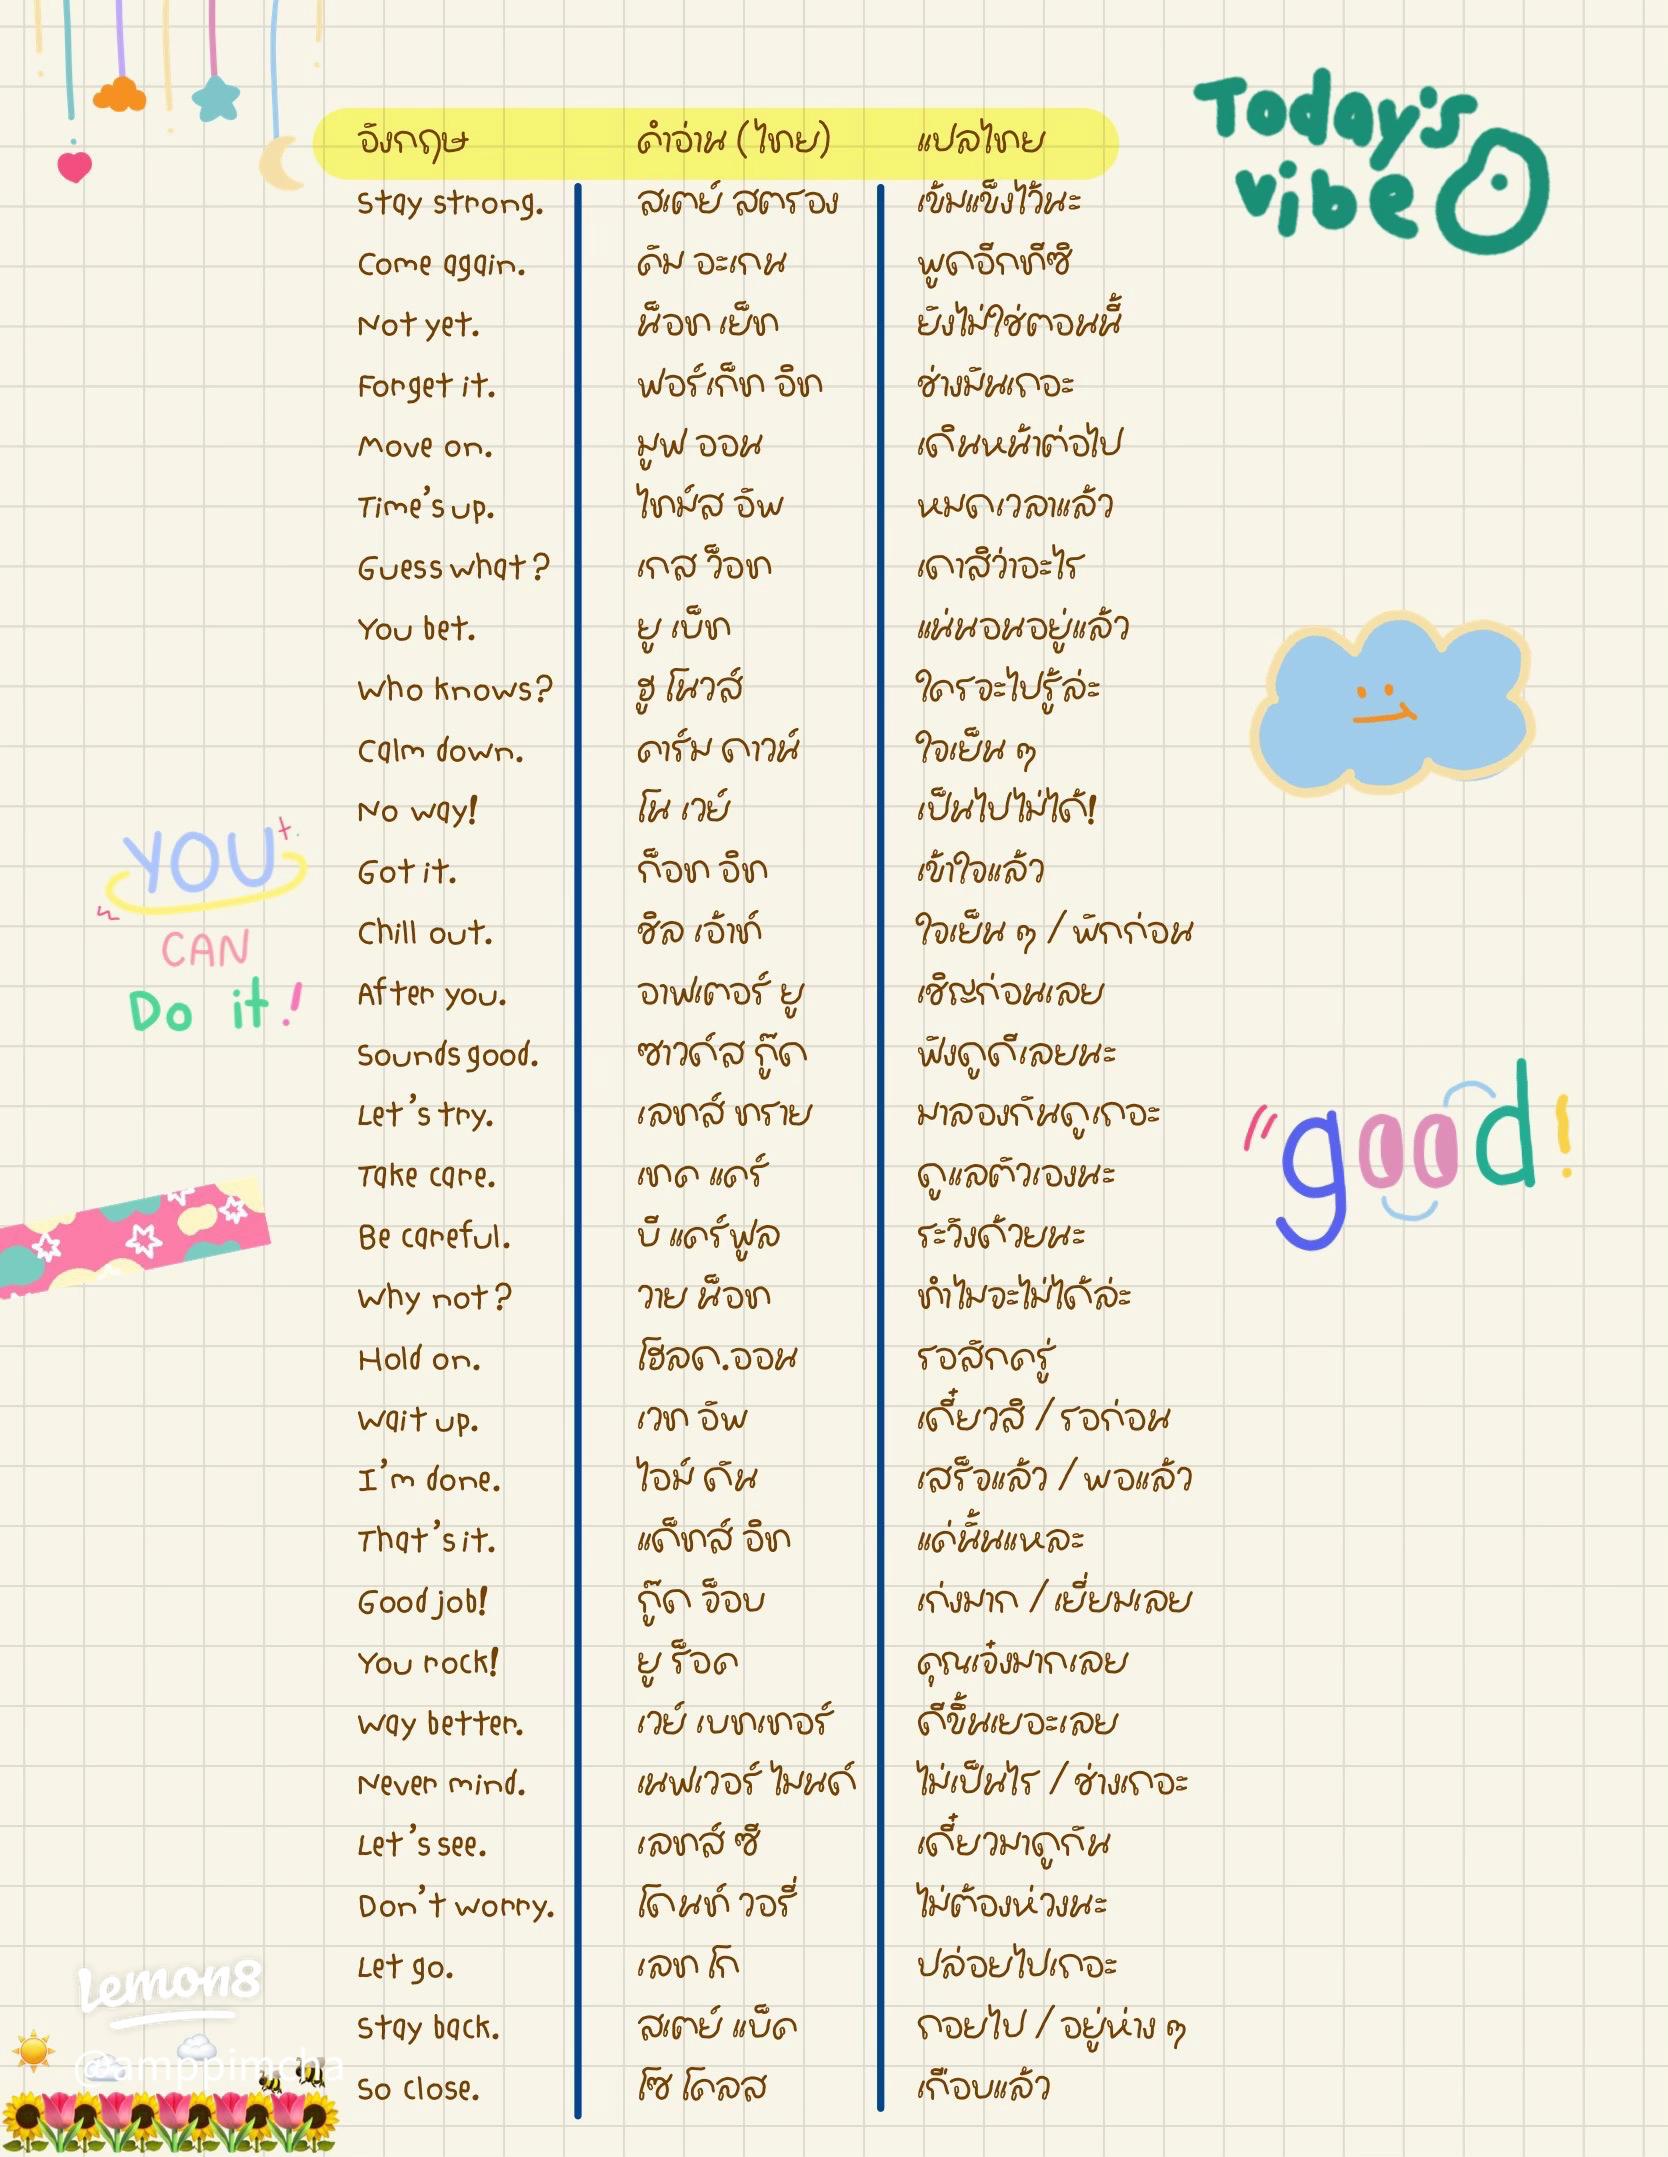 Today's
vibe
อังกฤษ คำอ่าน (ไทย) แปลไทย
Stay strong. สเตย์ สตรอง เข้มแข็งไว้นะ
Come again. คัม อะเกน พูดอีกทีซิ
Not yet. น็อท เย็ท ยังไม่ใช่ตอนนี้
Forget it. ฟอร์เก็ท อิท ช่างมันเถอะ
Move on. มูฟ ออน เดินหน้าต่อไป
Time's up. ไทม์ส อัพ หมดเวลาแล้ว
Guess what? เกส ว็อท เดาสิว่าอะไร
You bet. ยู เบ็ท แน่นอนอยู่แล้ว
Who knows? ฮู โนวส์ ใครจะไปรู้ล่ะ
Calm down. คาร์ม ดาวน์ ใจเย็น ๆ
No way! โน เวย์ เป็นไปไม่ได้!
Got it. ก็อท อิท เข้าใจแล้ว
Chill out. ชิล เอ้าท์ ใจเย็น ๆ / พักก่อน
After you. อาฟเตอร์ ยู เชิญก่อนเลย
Sounds good. ซาวด์ส กู๊ด ฟังดูดีเลยนะ
Let's try. เลทส์ ทราย มาลองกันดูเถอะ
Take care. เทค แคร์ ดูแลตัวเองนะ
Be careful. บี แคร์ฟูล ระวังด้วยนะ
Why not? วาย น็อท ทำไมจะไม่ได้ล่ะ
Hold on. โฮลด.ออน รอสักครู่
Wait up. เวท อัพ เดี๋ยวสิ / รอก่อน
I'm done. ไอม์ ดัน เสร็จแล้ว / พอแล้ว
That's it. แด็ทส์ อิท แค่นั้นแหละ
Good job! กู๊ด จ็อบ เก่งมาก / เยี่ยมเลย
You rock! ยู ร็อค คุณเจ๋งมากเลย
Way better. เวย์ เบทเทอร์ ดีขึ้นเยอะเลย
Never mind. เนฟเวอร์ ไมนด์ ไม่เป็นไร / ช่างเถอะ
Let's see. เลทส์ ซี เดี๋ยวมาดูกัน
Don't worry. โดนท์ วอรี่ ไม่ต้องห่วงนะ
Let go. เลท โก ปล่อยไปเถอะ
Stay back. สเตย์ แบ็ค ถอยไป / อยู่ห่าง ๆ
So close. โซ โคลส เกือบแล้ว
YOU
CAN
Do it!
good!
Lemon8
@amppimcha